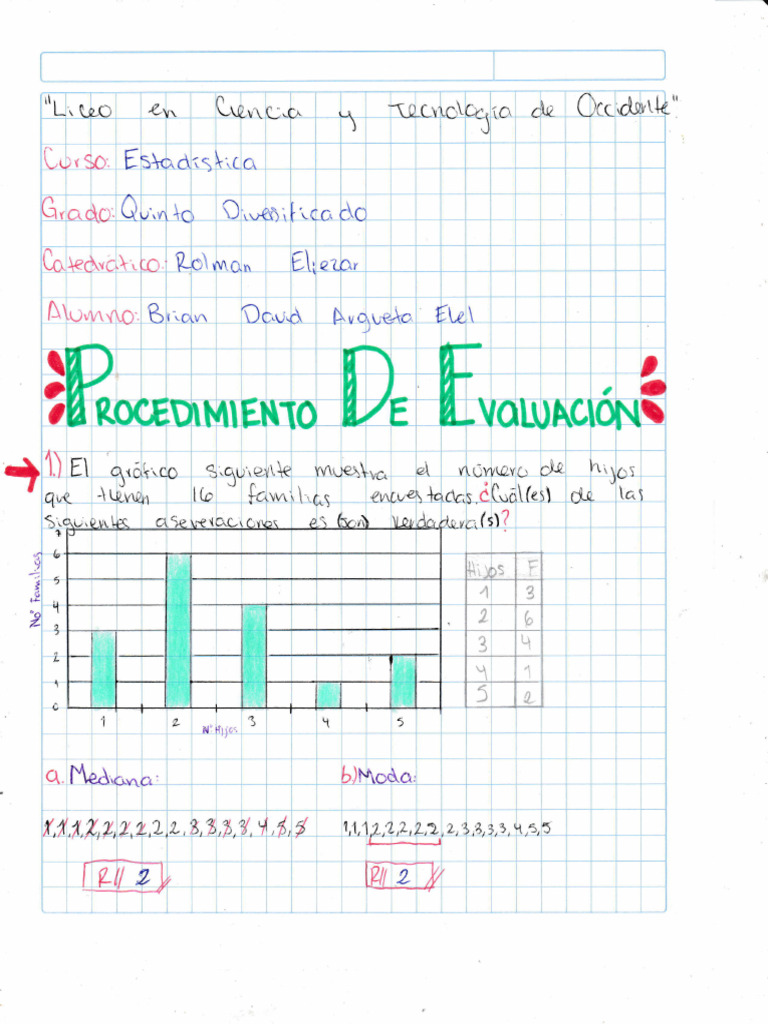 "Liceo en Ciencia y Tecnología de Occidente"
Curso: Estadística
Grado: Quinto Diversificado
Catedrático: Rolman Eliezar
Alumno: Brian David Argueta Elel
PROCEDIMIENTO DE EVALUACIÓN
1.) El gráfico siguiente muestra el número de hijos
que tienen 16 familias encuestadas. ¿Cuál(es) de las
siguientes aseveraciones es (son) verdadera(s)?
No° Familias
7
6
5
4
3
2
1
0
1 2 3 4 5
N° Hijos
Hijos F
1 3
2 6
3 4
4 1
5 2
a. Mediana:
b) Moda:
1,1,1,2,2,2,2,2,2,3,3,3,3,4,5,5
1,1,1,2,2,2,2,2,2,3,3,3,3,4,5,5
R// 2
R// 2